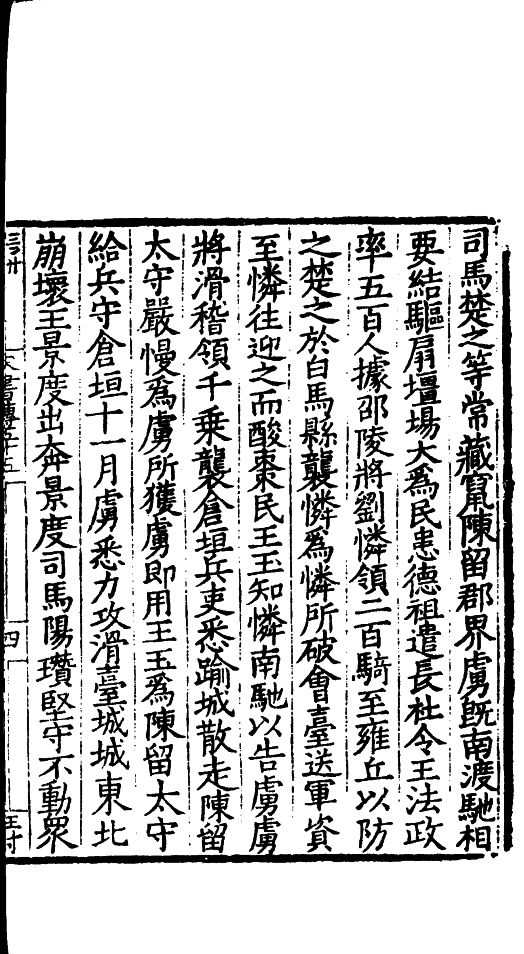 司馬楚之等常藏竄陳留郡界虜旣南渡馳相
要結驅扇壃場大爲民患德祖遣長社令王法政
率五百人據邵陵將劉憐領二百騎至雍丘以防
之楚之於白馬縣襲憐爲憐所破會臺送軍資
至憐往迎之而酸棗民王玉知憐南馳以告虜虜
將滑稽領千乗襲倉垣兵吏悉踰城散走陳留
太守嚴慢爲虜所獲虜即用王玉爲陳留太守
給兵守倉垣十一月虜悉力攻滑臺城城東北
崩壞王景度出奔景度司馬陽瓚堅守不動衆
四